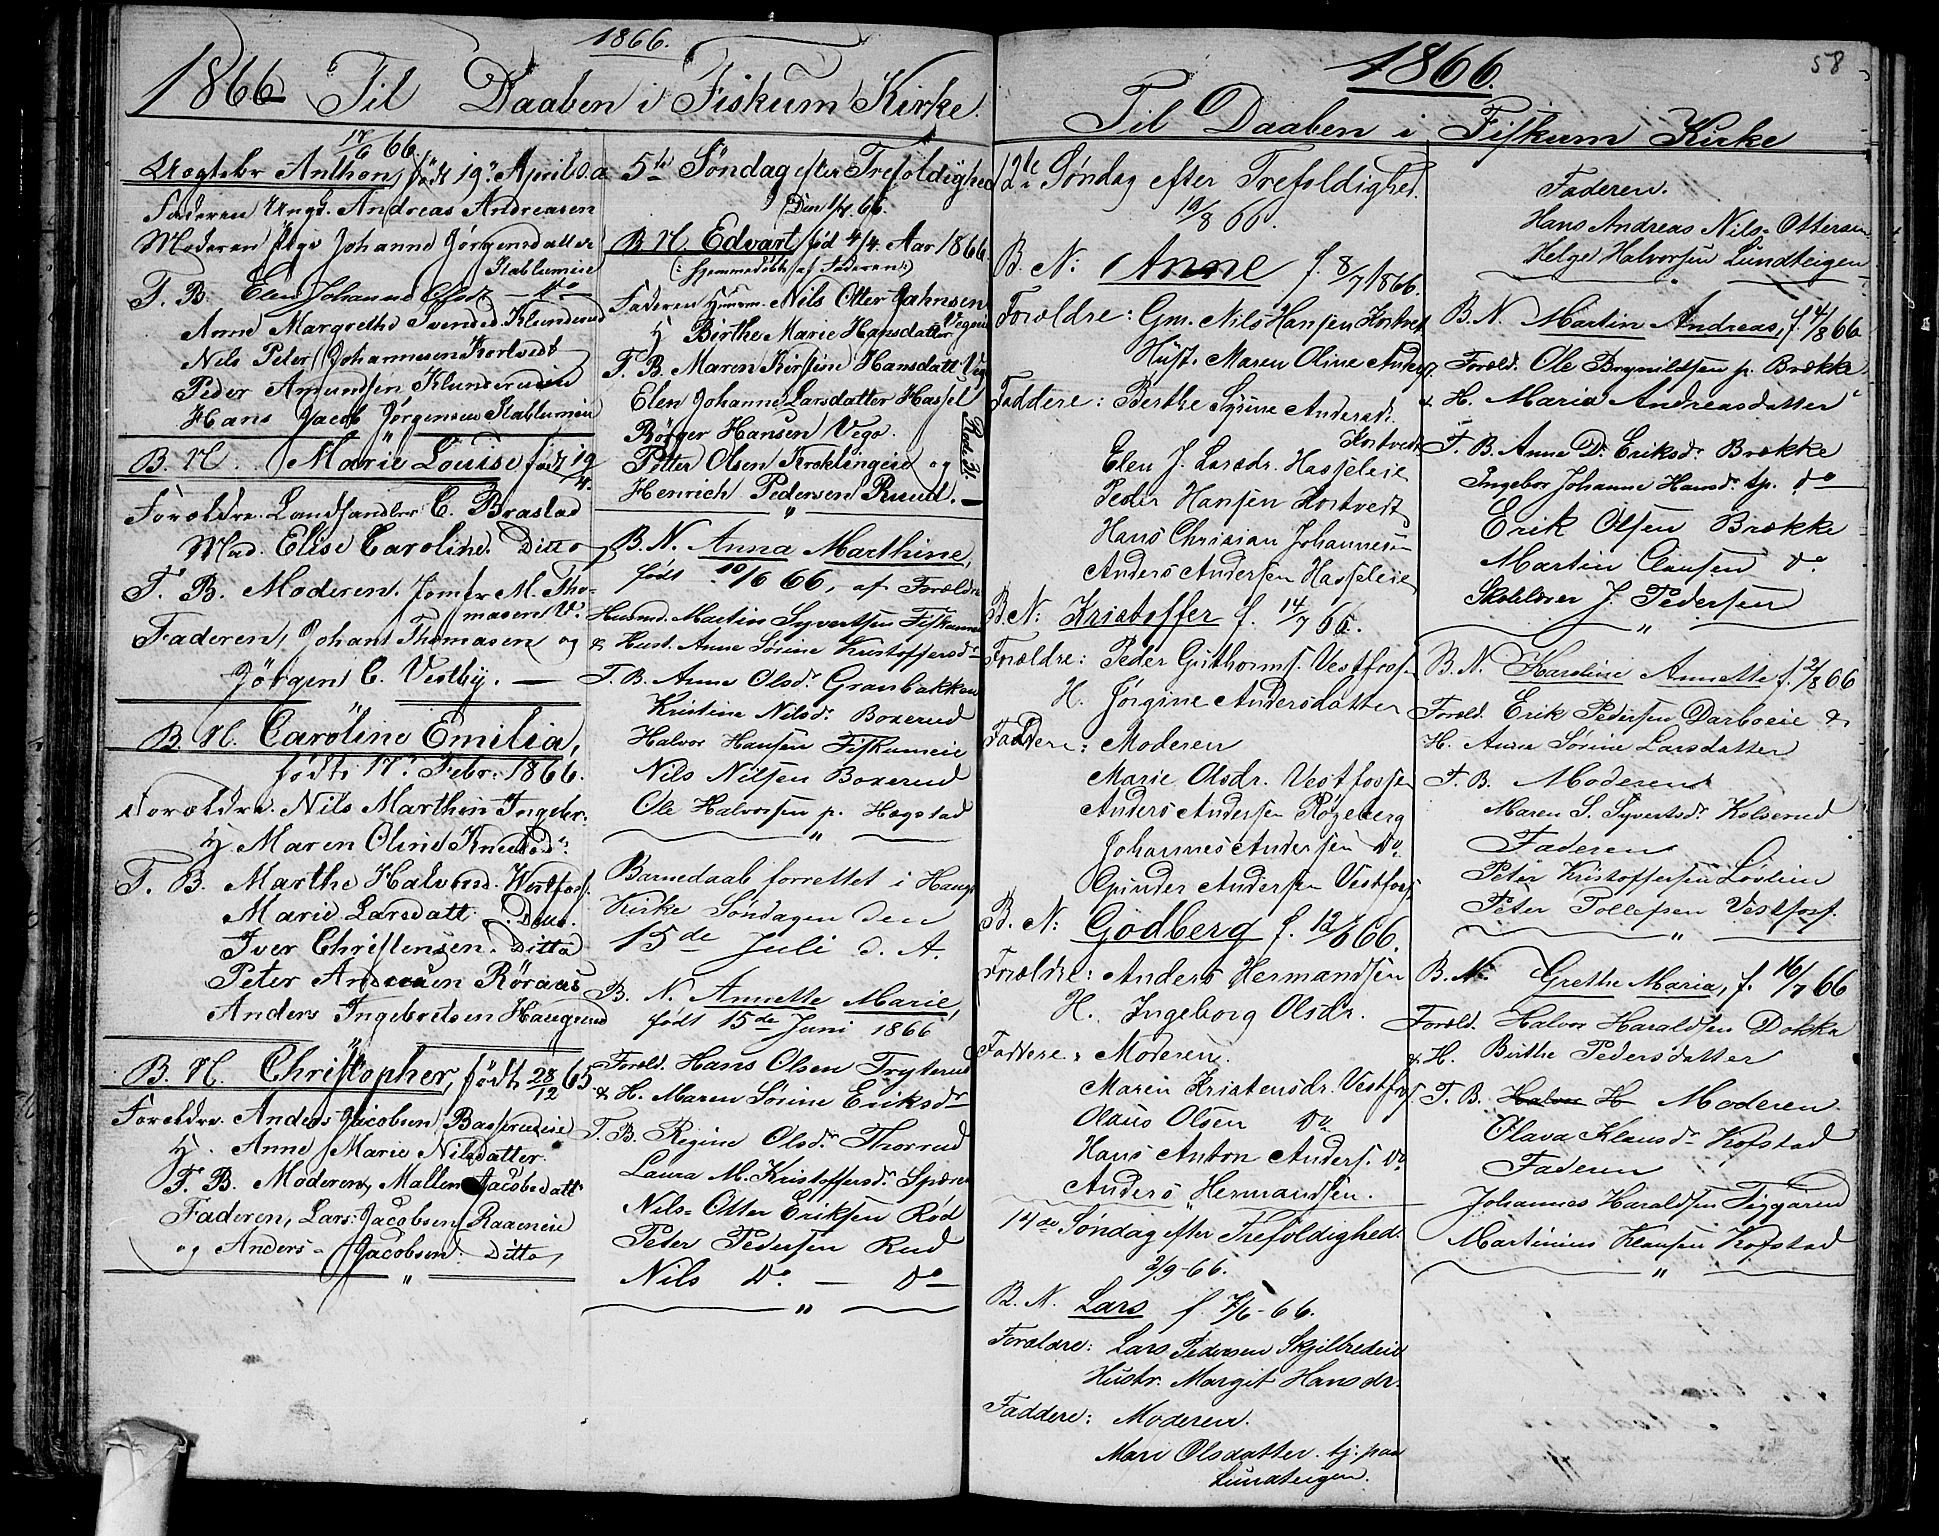 1866.
1866 Til Daaben i Fiskum Kirke.
17/6 66
Uegtebr Anthon, født 19. April d. a
Faderen Ungk. Andreas Andreasen
Moderen Pige Johanne Jørgensdatter
Stablumeie
F. B. Elen Johanne Olsdr — do
Anne Margrethe Svensd. Klunderud
Nils Peter Johannesen Kortvedt
Peder Amundsen Klunderudeie
Hans Jacob Jørgensen Stablumeie
B. N. Marie Louise født 19/4.
Foræeldre. Landhandler C. Brastad
Mad. Elise Caroline. Ditto
F. B. Moderen. Jomfr M. Thomasen V.
Faderen, Johan Thomasen og
Jörgen C. Vestby. —
B. N. Caroline Emilia,
født 17. Febr. 1866.
Forældre. Nils Marthin Ingebr.
H Maren Oline Knudsd.
F. B. Marthe Halvorsd. Westfoss.
Marie Larsdatt. Ditto.
Iver Christensen. Ditto
Peter Andersen Röraas
Anders Ingebretsen Haugrund
B. N. Christopher, født 28/12 65
Forældre. Anders Jacobsen Basserudeie
H. Anne Marie Nilsdatter.
F. B. Moderen, Mallene Jacobsdatt.
Faderen, Lars Jacobsen Raaeneie
og Anders Jacobsen. Ditto,
5te Söndag efter Trefoldighed
Den 1/7 66.
B. N. Edvart, fød 4/4. Aar 1866
(: hjemmedöbt af Faderen :)
Faderen Husm. Nils Otter Jahnsen
Vegeie
H Birthe Marie Hansdatter
F. B. Maren Kirstine Hansdatt. Veg
Elen Johanne Larsdatter Hassel
Börger Hansen Vego.
Petter Olsen Kroklingeie og
Henrich Pedersen Ruud. —
B. N. Anna Marthine,
født 10/6 66, af Forældre
Husmd. Martin Syvertsen Fiskum
& Hust. Anne Sørine Kristoffersdr
F. B. Anne Olsdr. Granbakken
Kristine Nilsdr. Boxerud
Halvor Hansen Fiskumeie
Nils Nilsen Boxerud
Ole Halvorsen p. Hægstad
Barnedaab forrettet i Haugs
Kirke Søndagen den
15de Juli d. A.
B. N. Annette Marie,
født 15de Juni 1866
Foræld. Hans Olsen Tryterud
& H. Maren Sörine Eriksdr
F. B. Regine Olsdr Thorrud
Laura M. Kristoffersdr. Spæren
Nils-Otter Eriksen Rød
Peter Pedersen Rud
Nils Do. — Do
1866.
58
Til Daaben i Fiskum Kirke
12te Søndag efter Trefoldighed.
19/8 66.
B. N: Anne f. 8/7 1866.
Forældre: Gm. Nils Hansen Kortvedt
Hust. Maren Oline Andersd.
Faddere: Berthe Sysine Andersdr.
Kortvedt
Elen J. Larsdr. Hasseleie
Peder Hansen Kortvedt
Hans Chrisian Johannesen
Anders Andersen Hasseleie
B. N: Kristoffer f. 14/7 66.
Forældre: Peder Guthorms. Vestfoss.
H. Jørgine Andersdatter
Faddere: Moderen
Marie Olsdr. Vestfossen
Anders Andersen Røgeberg
Johannes Andersen Do.
Gunder Andersen Vestfoss.
B. N: Godberg f. 12/6 66.
Forældre: Anders Hermandsen
H. Ingeborg Olsdr.
Faddere: Moderen.
Maren Kristensdr. Vestfoss.
Olaus Olsen Do
Hans Anton Anders. Do
Anders Hermandsen.
14de Søndag efter Trefoldighed.
2/9-66.
B. N. Lars f. 7/6-66.
Forældre: Lars Pedersen Skjilbredeie
Hustr. Margit Hansdr.
Faddere: Moderen.
Mari Olsdatter tj. paa
Lundteigen.
Faderen.
Hans Andreas Nils-Ottersen
Helge Halvorsen Lundteigen
B. N. Martin Andreas, f. 14/8 66
Foræld. Ole Brynildsen p. Brække
& H. Maria Andreasdatter
F. B. Anne D. Eriksdr Brække
Ingebor Johanne Hansdr. tp. Do
Erik Olsen Brække
Martin Clausen Do
Skolelærer J. Pedersen
B. N. Karoline Annette f. 2/8 66
Foræld. Erik Pedersen Darboeie &
H. Anne Sörine Larsdatter
F. B. Moderen
Maren S. Syvertsdr. Kolserud
Faderen
Peter Kristoffersen Lövlien
Peter Tollefsen Vestfoss.
B. N. Grethe Maria, f. 16/7 66
Foræld. Halvor Haraldsen Dokka
& H. Birthe Pedersdatter
F. B. Halvor H Moderen
Olava Klausdr Kopstad
Faderen
Johannes Haraldsen Tiggeren
Martinius Klausen Kopstad